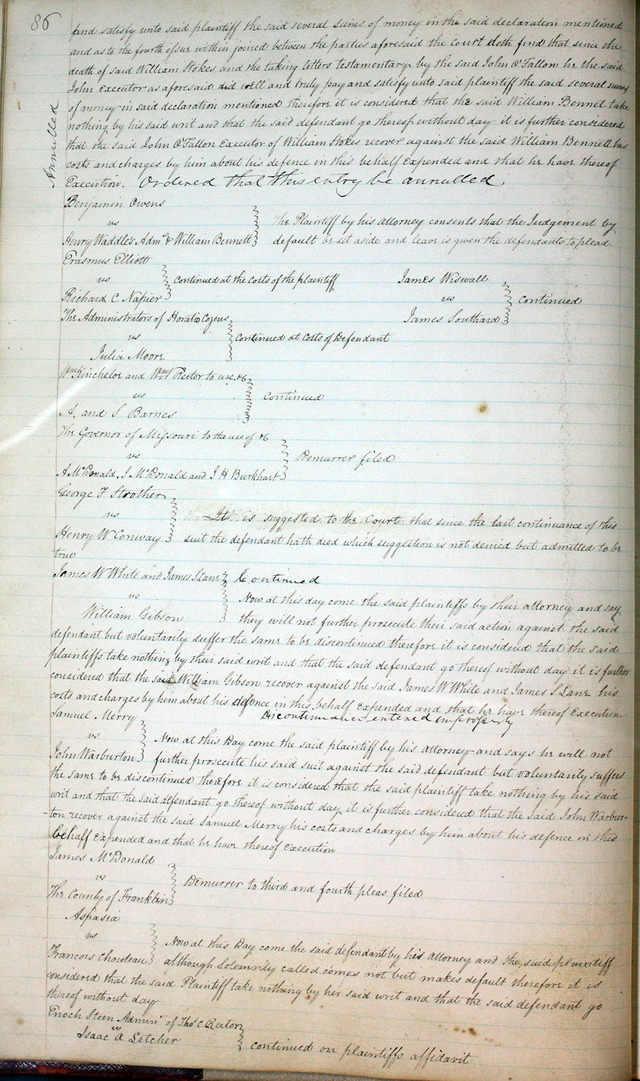 86
find satisfy unto said plaintiff the said several sums of money in the said declaration mentioned
and as to the fourth issue within joined between the parties aforesaid the court doth find that since the
death of said William Stokes and the taking letters testamentary by the said John O'Fallon he the said
John Executor as aforesaid did well and truly pay and satisfy unto said plaintiff the said several sums
of money in said declaration mentioned therefore it is considered that the said William Bennet take
nothing by his said writ and that the said defendant go thereof without day it is further considered
that the said John O'Fallon Executor of William Stokes recover against the said William Bennett his
costs and charges by him about his defence in this behalf Expended and that he have thereof
Execution. Ordered that this entry be annulled.
Annulled
Benjamin Owens
vs
Henry Waddles Admr & William Bennett
The Plaintiff by his attorney consents that the Judgement by
default be set aside and leave is given the defendants to plead
Erasmus Elliott
vs
Richard C Napier
continued at the costs of the plaintiff
James Wiswall
vs
James Southard
continued
The Administrators of Horatio Cozens
vs
Julia Moore
continued at Costs of Defendant
Kincheloe and Wm Rector to use &c
vs
A. and S Barnes
continued
The Governor of Missouri to the use of &c
vs
A McDonald, J. McDonald and J H Burkhart
Demurrer filed
George F Strother
vs
Henry W Conway
It is suggested to the Court that since the last continuance of this
suit the defendant hath died which suggestion is not denied but admitted to be
true
James W White and James S Lane
Continued
vs
William Gibson
Now at this day come the said plaintiffs by their attorney and say
they will not further prosecute their said action against the said
defendant but voluntarily suffer the same to be discontinued therefore it is considered that the said
plaintiffs take nothing by their said writ and that the said defendant go thereof without day it is further
considered that the said William Gibson recover against the said James W White and James S Lane his
costs and charges by him about his defence in this behalf Expended and that he have thereof Execution.
Discontinuance entered improperly
Samuel Merry
vs
John Warburton
Now at this Day come the said plaintiff by his attorney and says he will not
further prosecute his said suit against the said defendant but voluntarily suffers
the same to be discontinued therefore it is considered that the said plaintiff take nothing by his said
writ and that the said defendant go thereof without day it is further considered that the said John Warbur-
ton recover against the said Samuel Merry his costs and charges by him about his defence in this
behalf Expended and that he have thereof Execution
James McDonald
vs
The County of Franklin
Demurrer to third and fourth pleas filed
Aspasia
vs
Francois Chouteau
Now at this Day come the said defendant by his attorney and the said plaintiff
although Solemnly called comes not but makes default therefore it is
considered that the said Plaintiff take nothing by her said writ and that the said defendant go
thereof without day.
Enoch Steen Adminr of Thos C Rector
vs
Isaac A Letcher
continued on plaintiffs affidavit